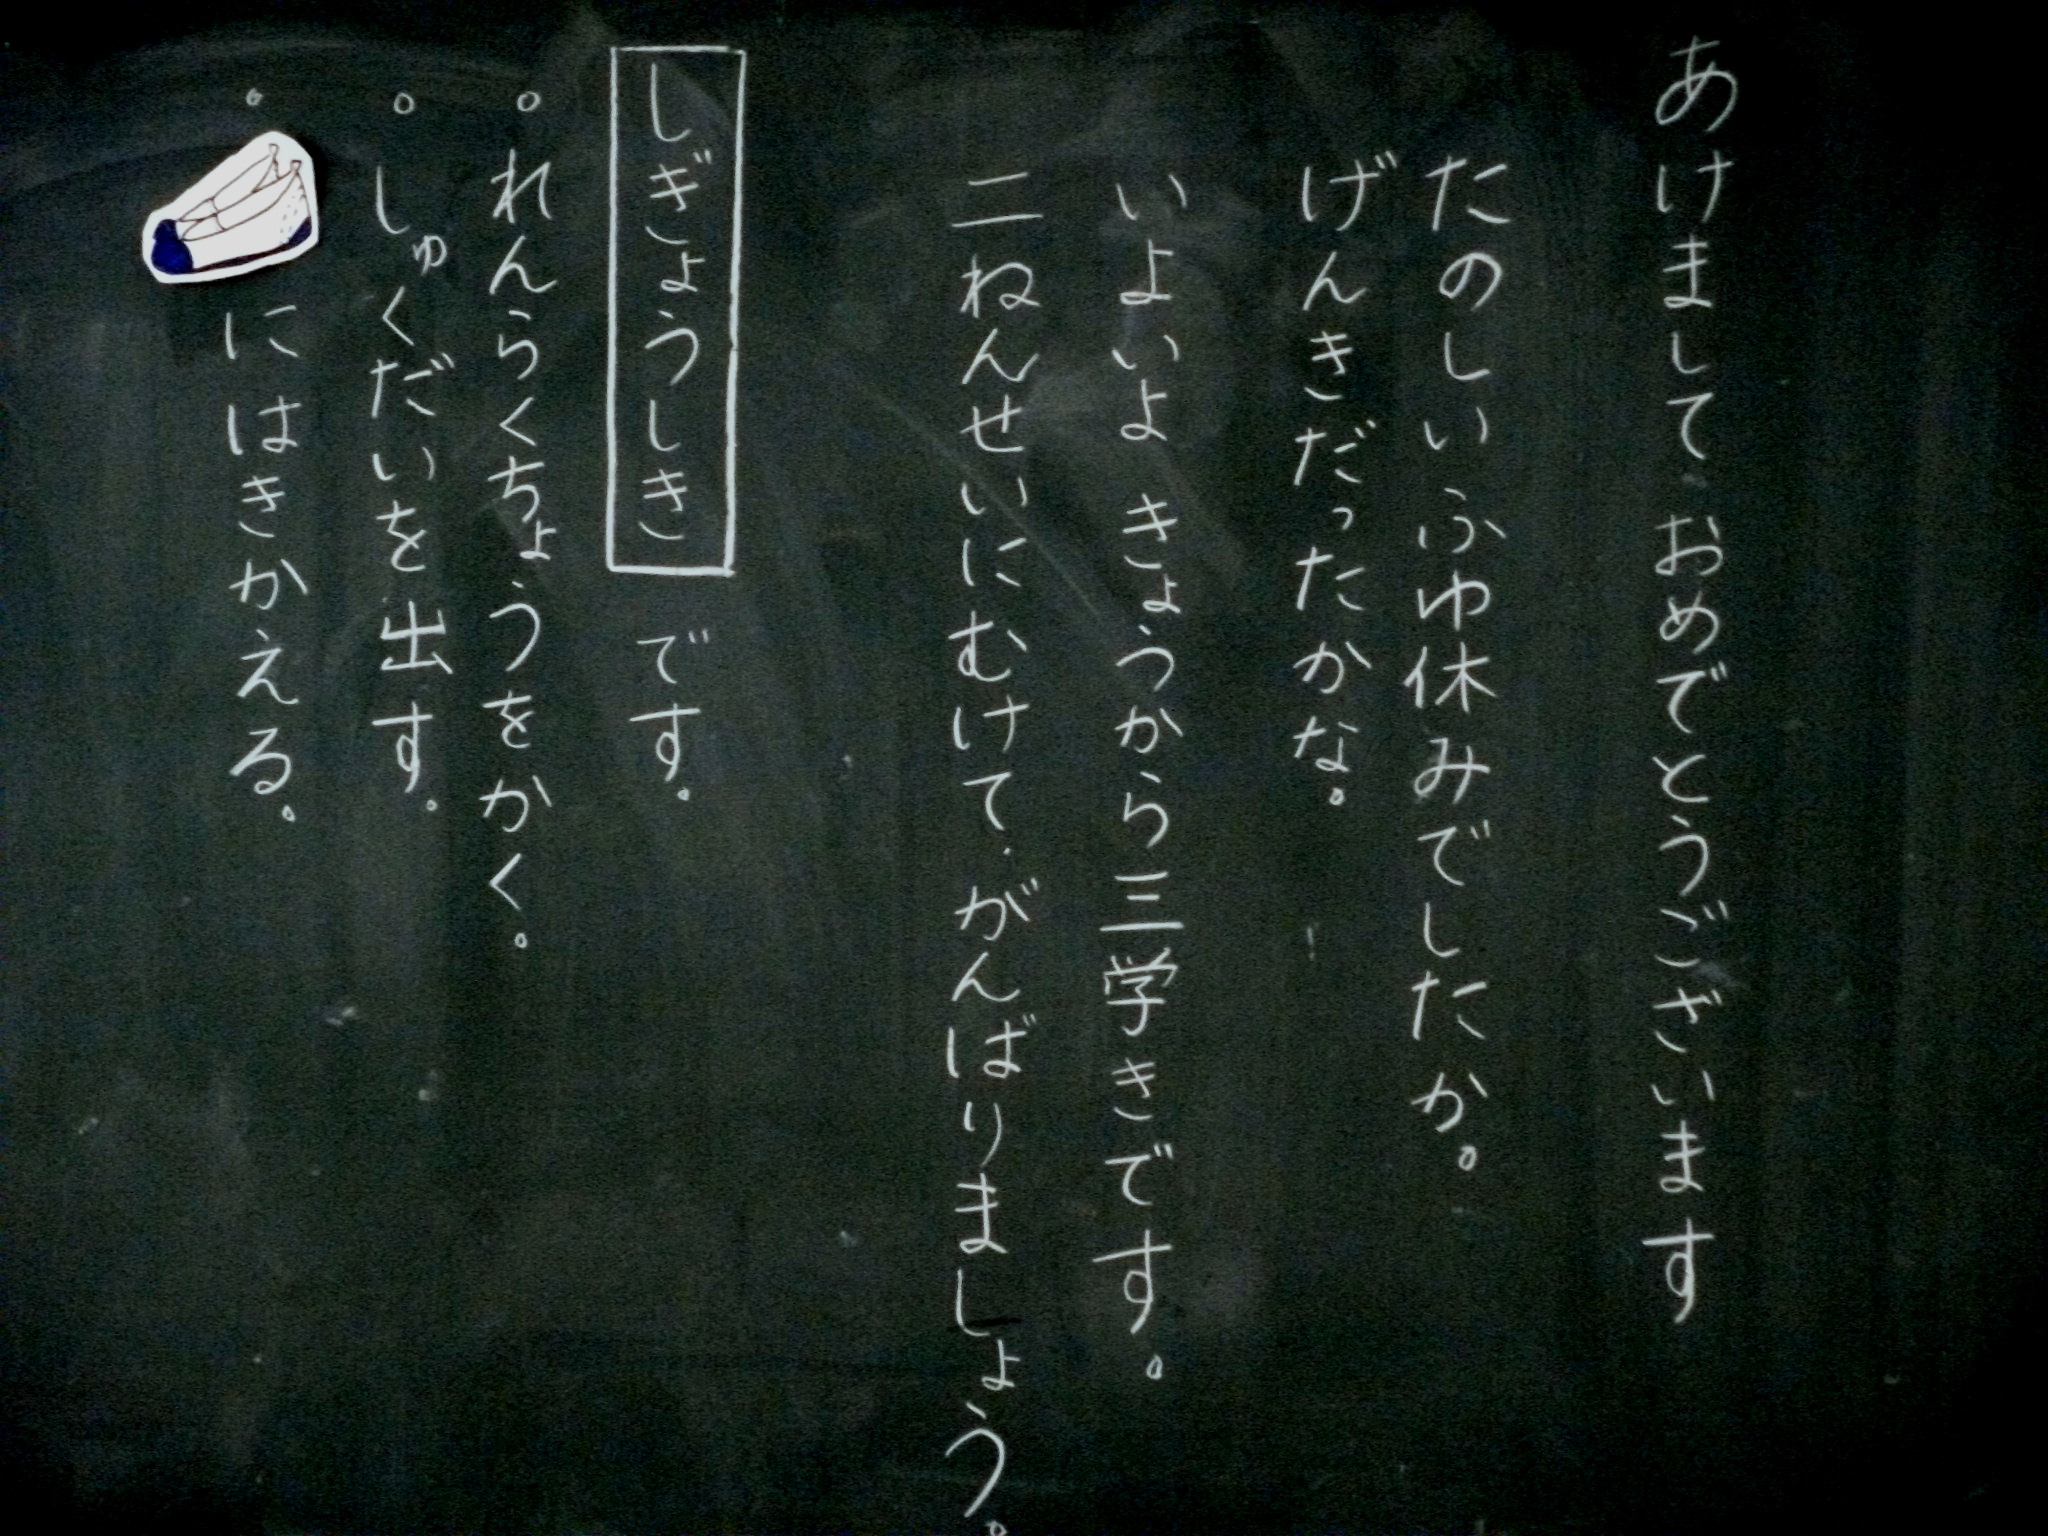 あけまして、おめでとうございます
たのしいふゆ休みでしたか。
げんきだったかな。
いよいよ きょうから三学きです。
二ねんせいにむけて、がんばりましょう。
しぎょうしき です。
○ れんらくちょうをかく。
○ しゅくだいを出す。
○ にはきかえる。